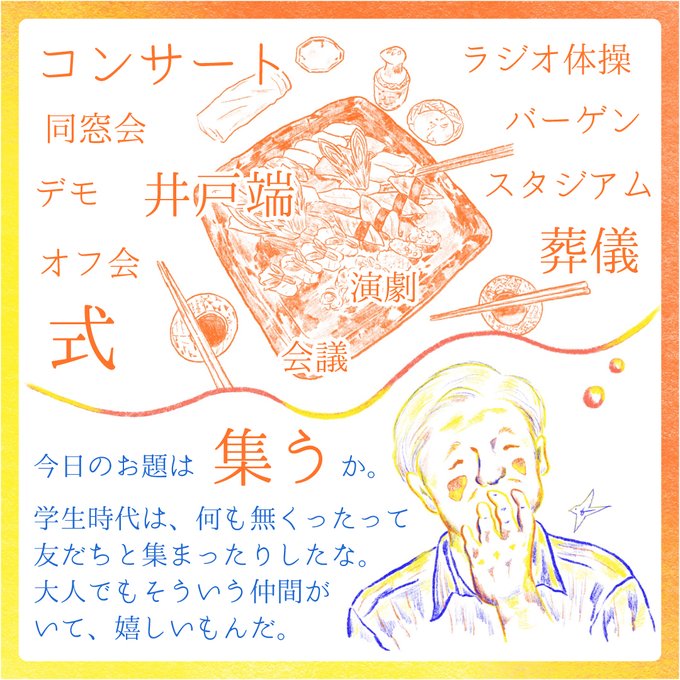 コンサート
ラジオ体操
同窓会
バーゲン
デモ
井戸端
スタジアム
オフ会
葬儀
演劇
式
会議
今日のお題は 集う か。
学生時代は、何も無くったって
友だちと集まったりしたな。
大人でもそういう仲間が
いて、嬉しいもんだ。